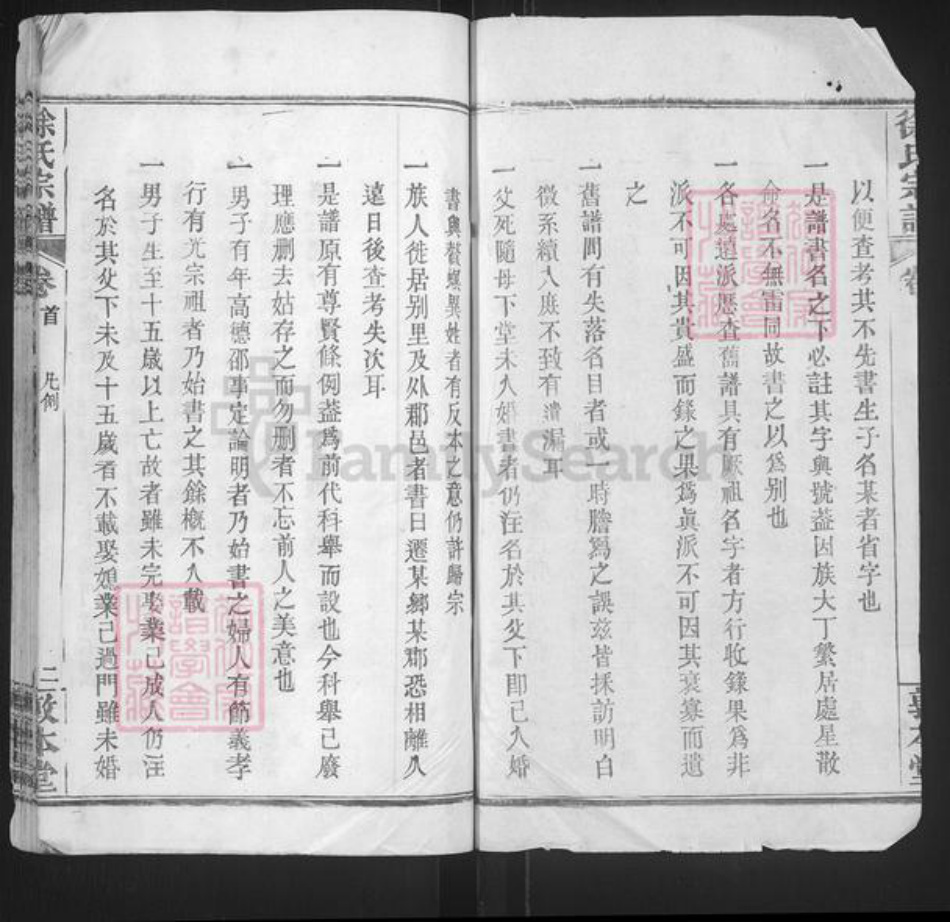 以便查考其不先書生子名某者省字也
一是譜書名之下必註其字與號蓋因族大丁繁居處星散
命名不無雷同故書之以爲别也
一各處遠派歷查舊譜具有厥祖名字者方行收錄果爲非
派不可因其貴盛而錄之果爲眞派不可因其衰寡而遺
之
一舊譜間有失落名目者或一時謄寫之誤兹皆採訪明白
徵系續入庶不致有遺漏耳
一父死隨母下堂未入婚書者仍注名於其父下即已入婚
書與贅螟異姓者有反本之意仍許歸宗
一族人徙居别里及外郡邑者書曰遷某鄉某郡恐相離久
遠日後查考失次耳
一是譜原有尊賢條例蓋爲前代科舉而設也今科舉已廢
理應删去姑存之而勿删者不忘前人之美意也
一男子有年高德邵事定論明者乃始書之婦人有節義孝
行有光宗祖者乃始書之其餘槪不入載
一男子生至十五歲以上亡故者雖未完娶業已成人仍注
名於其父下未及十五歲者不載娶媳業已過門雖未婚
徐氏宗譜
卷首
凡例
二
敦本堂
徐氏宗譜
卷
敦本堂
FamilySearch